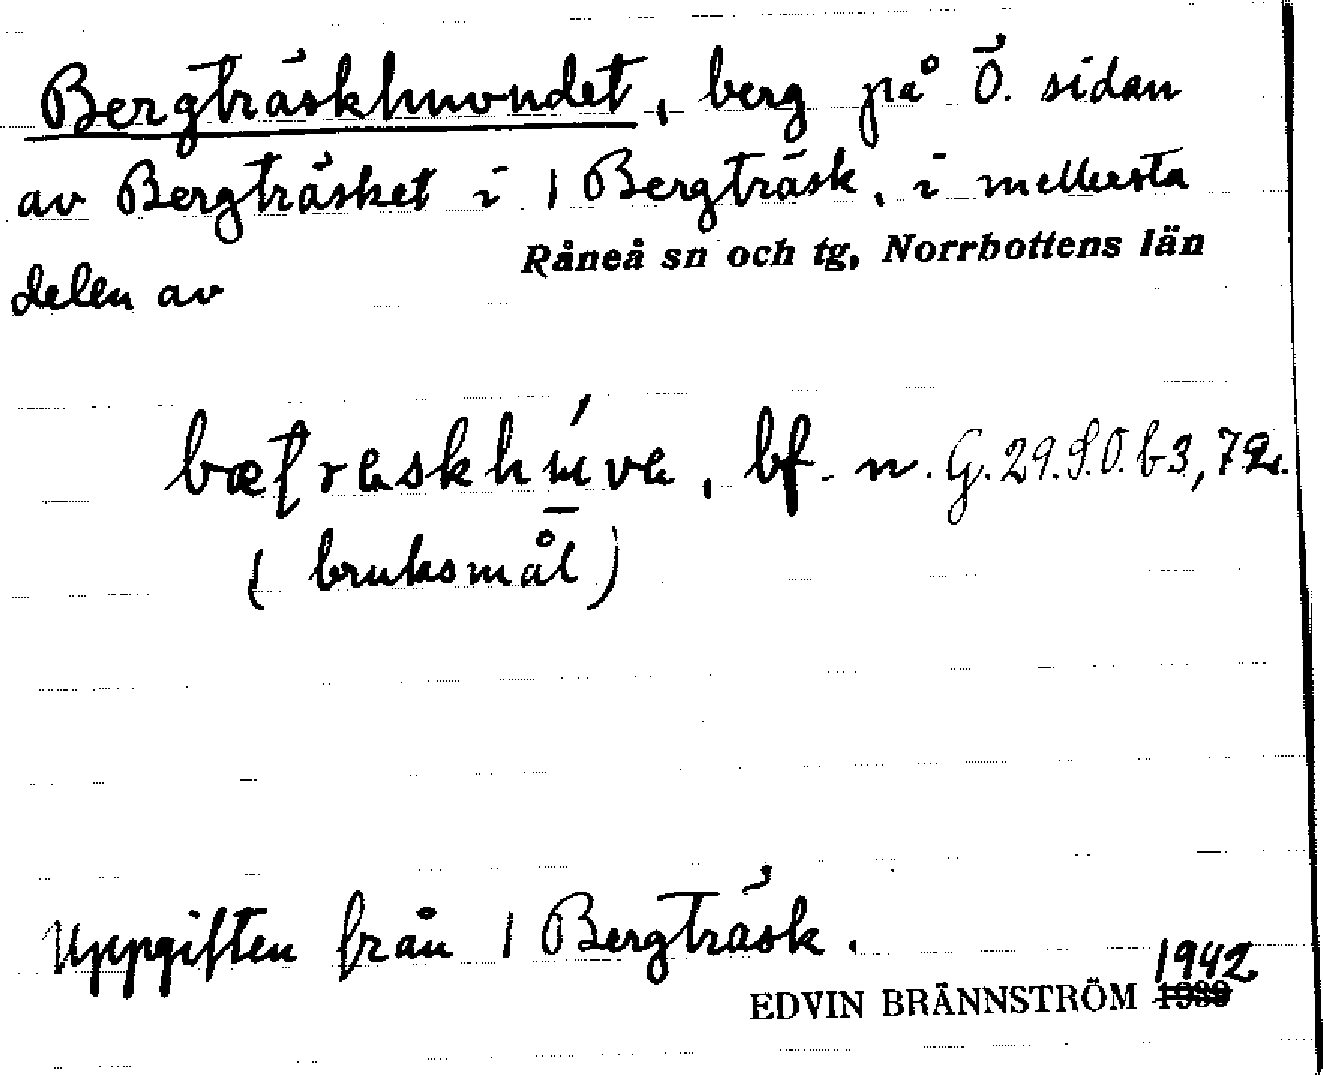 Bergträskhuvudet, berg på Ö. sidan
av Bergträsket i 1 Bergträsk, i mellersta
delen av Råneå sn och tg, Norrbottens län
bf. n. G.29.S.O. b 3, 72.
(bruksmål)
Uppgiften från 1 Bergträsk.
EDVIN BRÄNNSTRÖM 1942